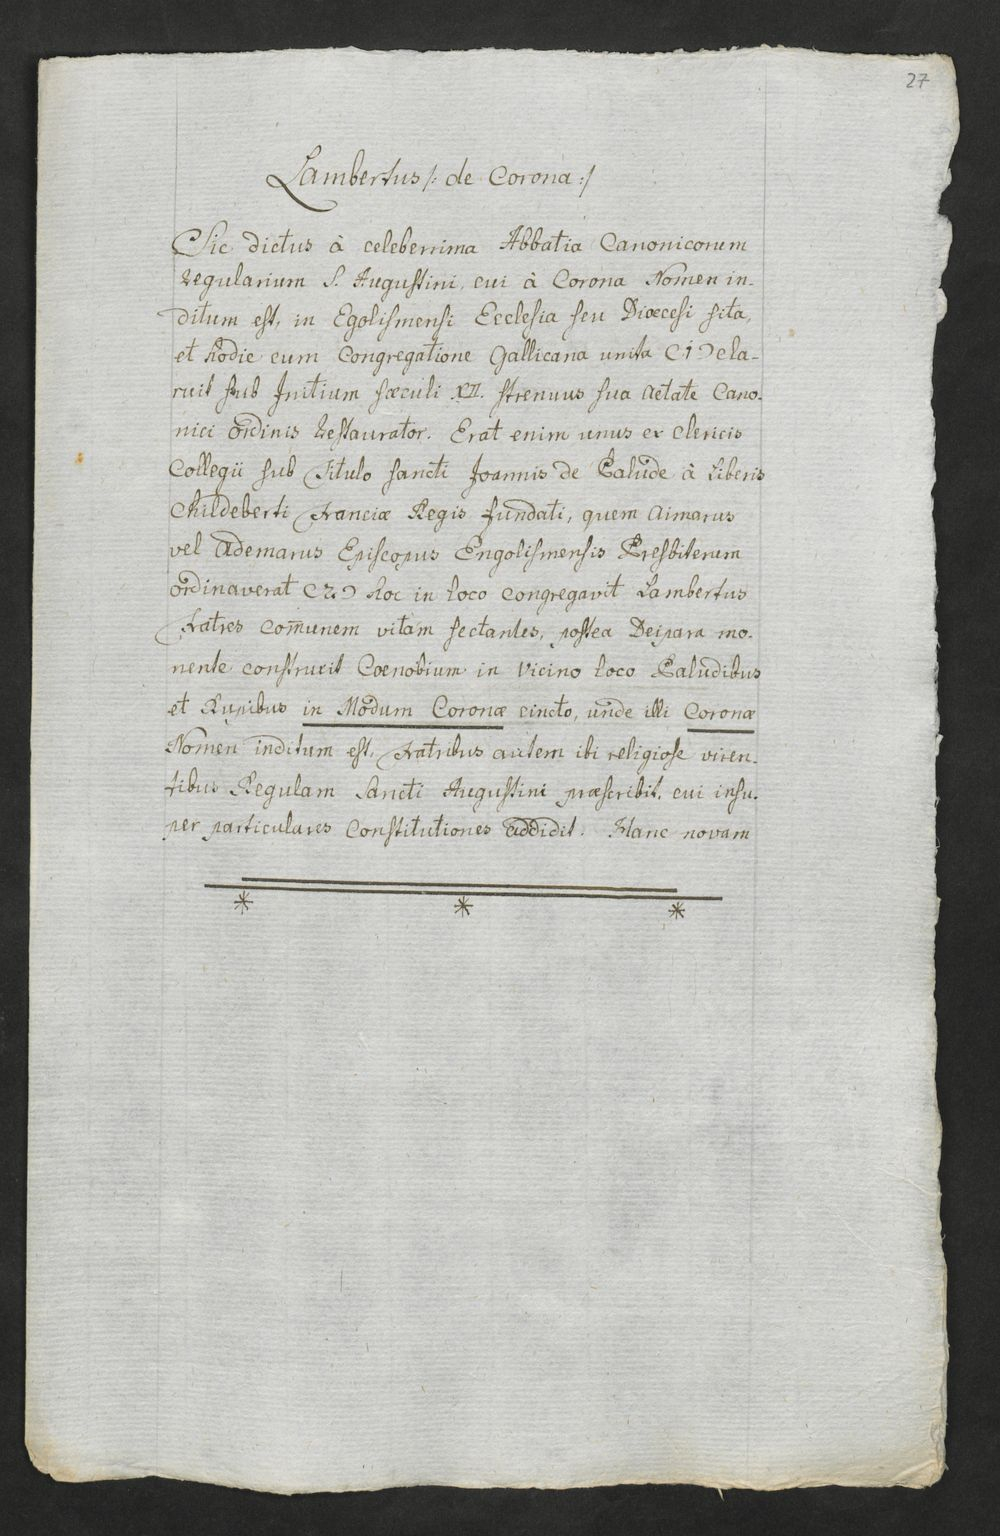 27
Lambertus /: de Corona :/
Sic dictus à celeberrima Abbatia Canonicorum
regularium S. Augustini, cui à Corona Nomen in-
ditum est, in Egolismensi Ecclesia seu Diœcesi sita,
et hodie cum Congregatione Gallicana unita (1) cla-
ruit sub Initium sæculi XII. strenuus sua aetate Cano-
nici ordinis restaurator. Erat enim unus ex clericis
Collegii sub Titulo sancti Joannis de Palude à Liberis
Childeberti Franciæ Regis fundati, quem Aimarus
vel Ademarus Episcopus Engolismensis Presbiterum
ordinaverat (2.) hoc in loco congregavit Lambertus
Fratres com̄unem vitam sectantes, postea Deipara mo-
nente construxit Coenobium in vicino loco Paludibus
et Rupibus in Modum Coronæ cincto, unde illi Coronæ
Nomen inditum est, Fratribus autem ibi religiose viven-
tibus Regulam Sancti Augustini præscribit, cui insu-
per particulares Constitutiones addidit. Hanc novam